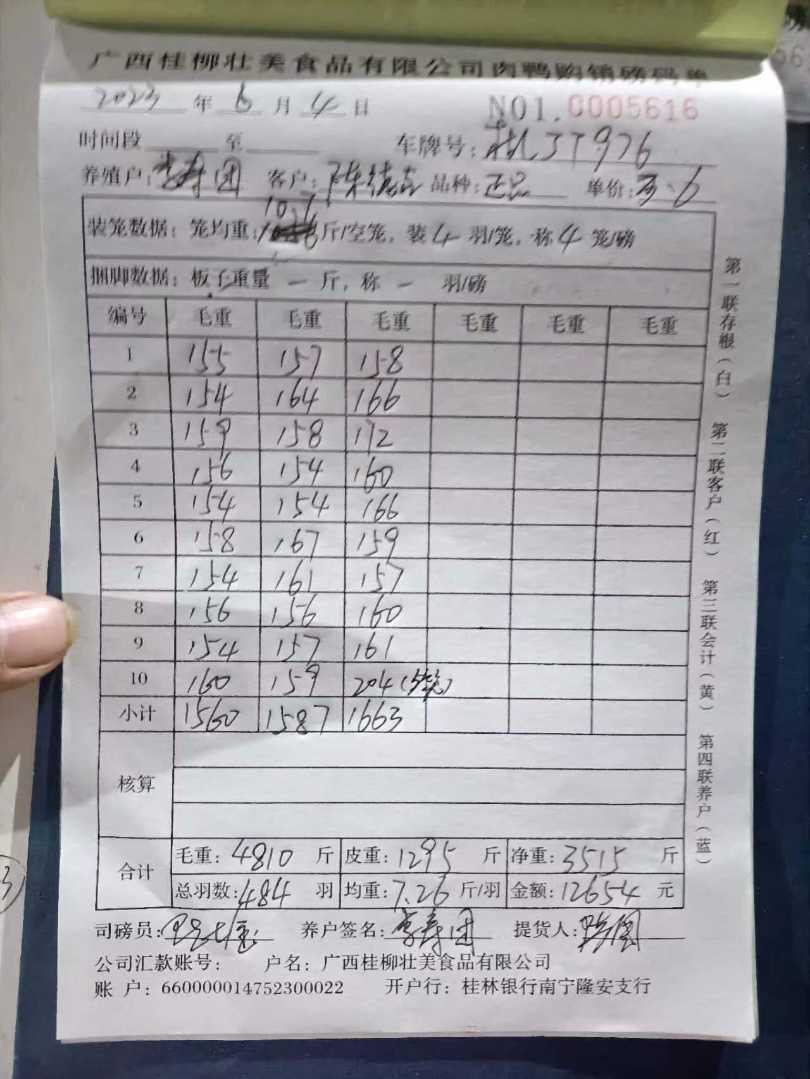 广西桂柳壮美食品有限公司肉鸭购销磅码单
2023 年 6 月 4 日 NO1. 0005616
时间段 至 车牌号: 桂JT976
养殖户: 李寿团 客户: 品种: 正品 单价: 3.6
装笼数据: 笼均重: 10.7 斤/空笼, 装 4 羽/笼, 称 4 笼/磅
捆脚数据: 板子重量 一 斤, 称 一 羽/磅
编号 毛重 毛重 毛重 毛重 毛重 毛重
1 155 157 158
2 154 164 166
3 159 158 172
4 156 154 160
5 154 154 166
6 158 167 159
7 154 161 157
8 156 156 160
9 154 157 161
10 160 159 204
小计 1560 1587 1663
核算
合计 毛重: 4810 斤 皮重: 1295 斤 净重: 3515 斤
总羽数: 484 羽 均重: 7.26 斤/羽 金额: 12654 元
司磅员: 养户签名: 李寿团 提货人:
公司汇款账号: 户名: 广西桂柳壮美食品有限公司
账 户: 660000014752300022 开户行: 桂林银行南宁隆安支行
第一联存根(白) 第二联客户(红) 第三联会计(黄) 第四联养户(蓝)